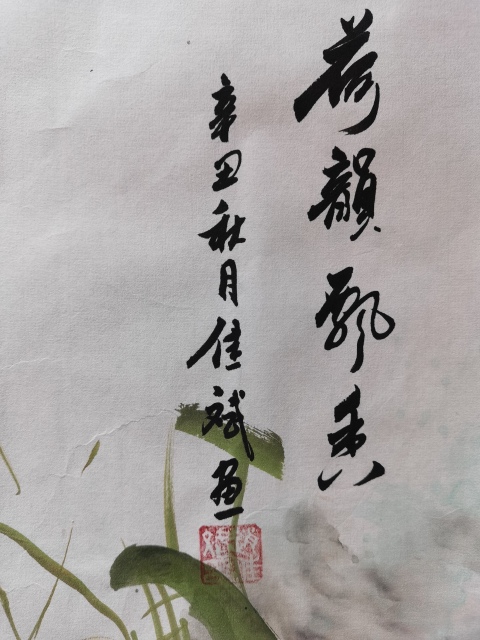 荷韻飄香
辛丑秋月佳斌画